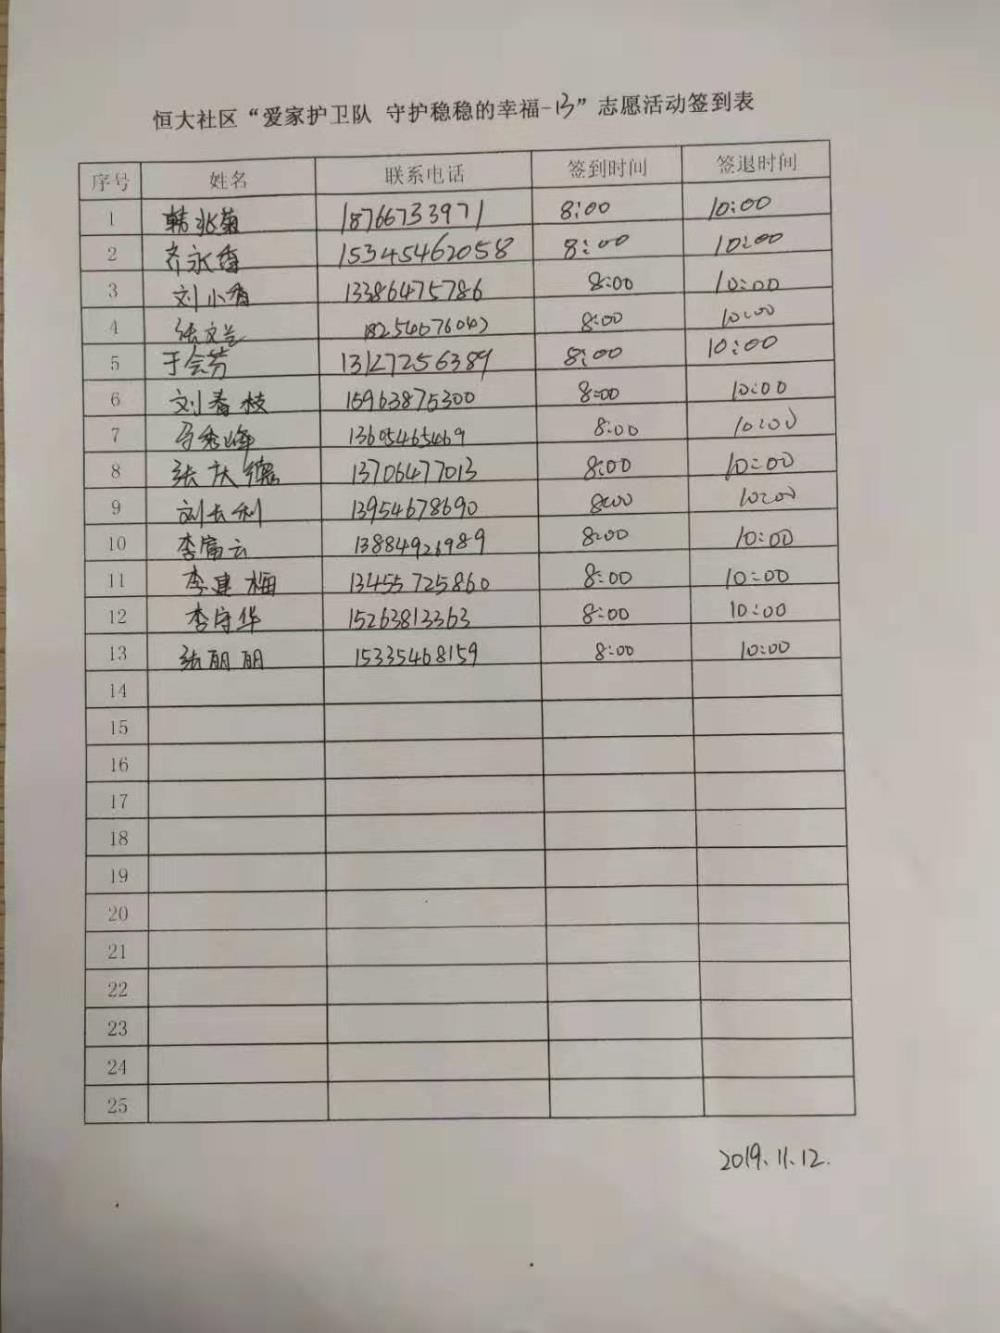 恒大社区“爱家护卫队 守护稳稳的幸福-13”志愿活动签到表
序号 姓名 联系电话 签到时间 签退时间
1 韩兆菊 18766733971 8:00 10:00
2 齐永香 15345462058 8:00 10:00
3 刘小香 13386475786 8:00 10:00
4 张文兰 18254676042 8:00 10:00
5 于会芬 13127256389 8:00 10:00
6 刘春枝 15963875300 8:00 10:00
7 马秀峰 13605465469 8:00 10:00
8 张庆德 13706477013 8:00 10:00
9 刘长利 13954678690 8:00 10:00
10 李富云 13884926989 8:00 10:00
11 李建梅 13455725860 8:00 10:00
12 李守华 15263813363 8:00 10:00
13 张丽丽 15335468159 8:00 10:00
14
15
16
17
18
19
20
21
22
23
24
25
2019.11.12.